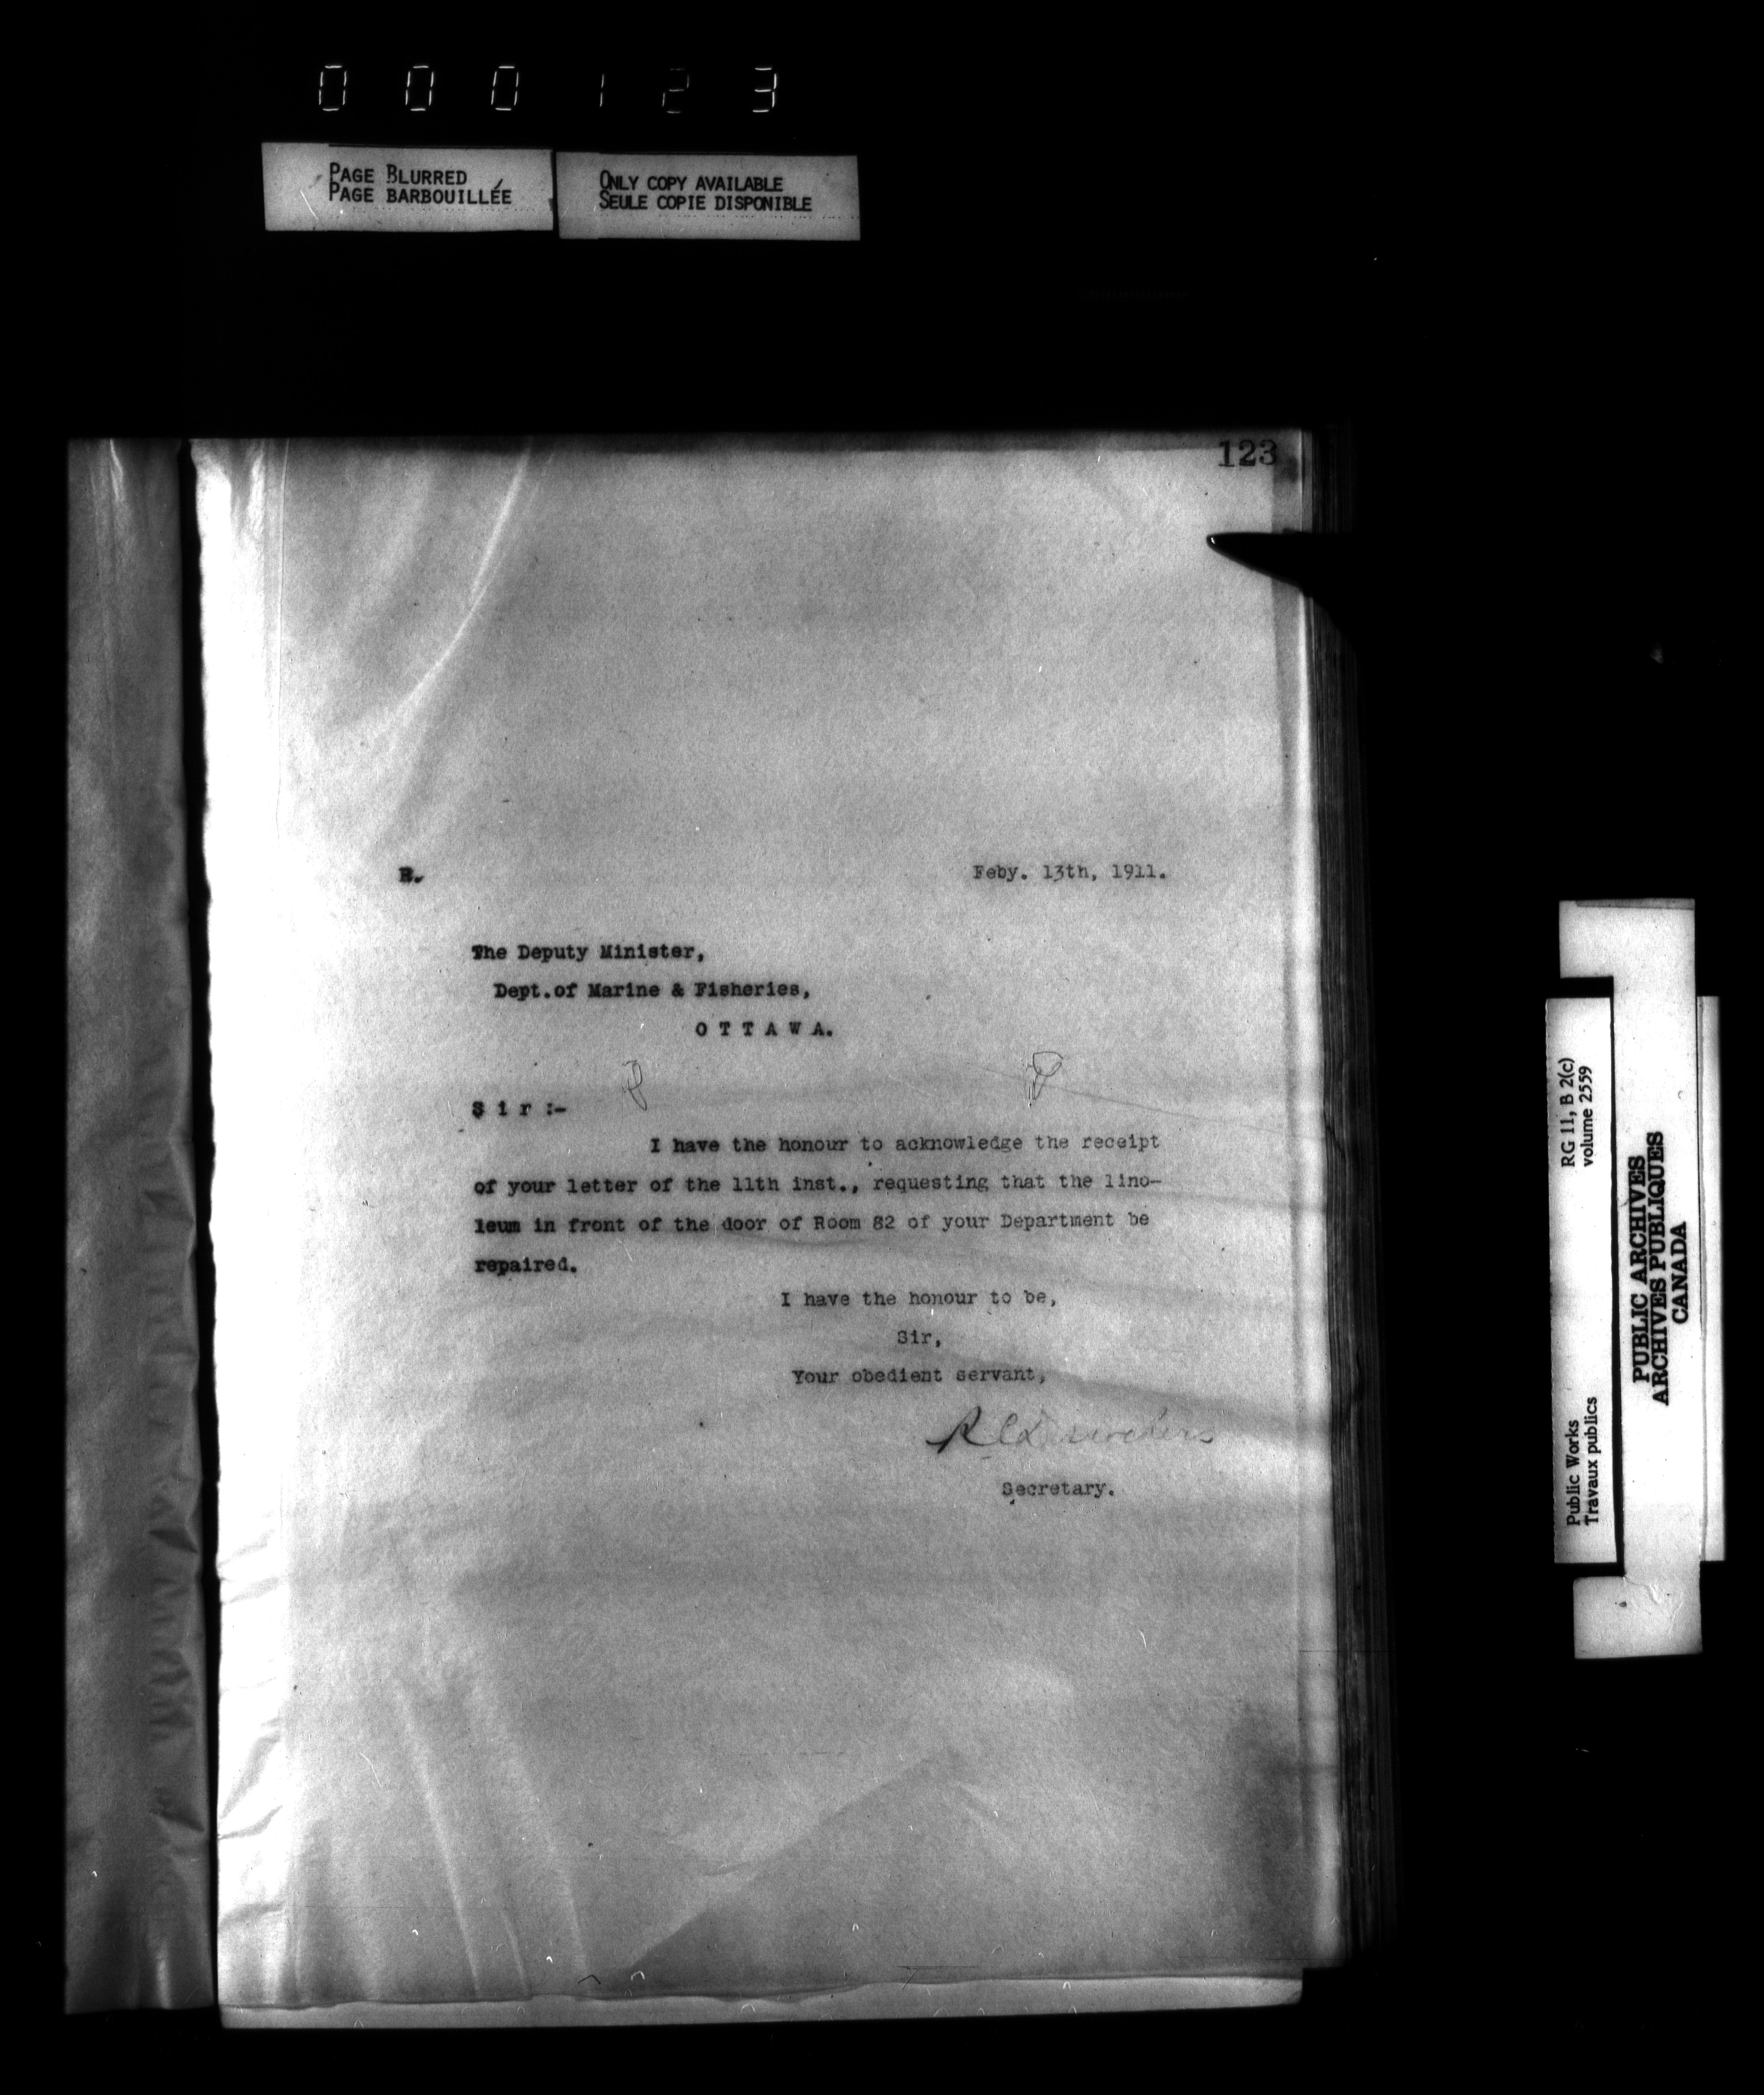 000123
PAGE BLURRED
PAGE BARBOUILLÉE
ONLY COPY AVAILABLE
SEULE COPIE DISPONIBLE
123
R.
Feby. 13th, 1911.
The Deputy Minister,
Dept.of Marine & Fisheries,
O T T A W A.
S i r :-
I have the honour to acknowledge the receipt
of your letter of the 11th inst., requesting that the lino-
leum in front of the door of Room 82 of your Department be
repaired.
I have the honour to be,
Sir,
Your obedient servant,
Secretary.
RG 11, B 2(c)
volume 2559
Public Works
Travaux publics
PUBLIC ARCHIVES
ARCHIVES PUBLIQUES
CANADA